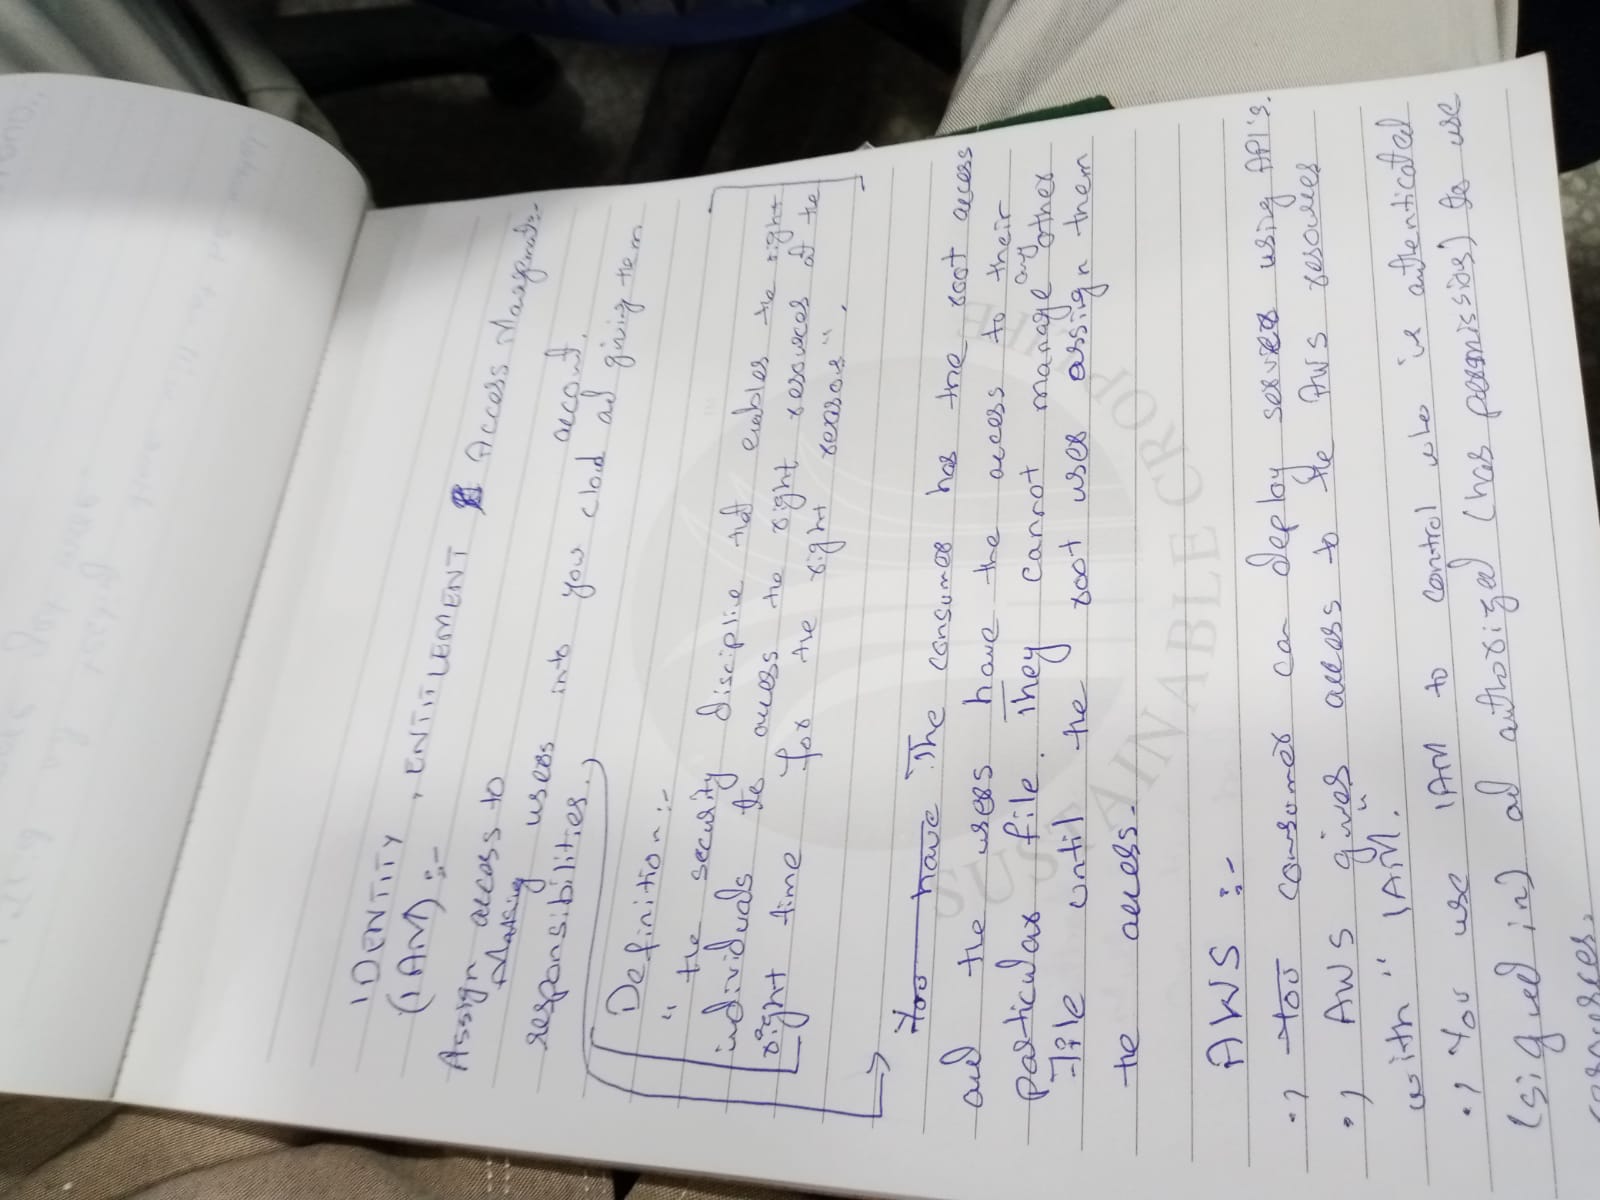 IDENTITY, ENTITLEMENT & Access Managemnt:-
(IAM) :-
Assign access to
users into your cloud account.
responsibilities.) ad giving them
Definition :-
" the security Discipline that enables the right
individuals to access the right resources at the
right time for the right reason".
You have The consumer has the root access
and the users have the access to their
particular file. They cannot manage any other
file until the root user assign them
the access.
AWS :-
•) You consumer can deploy servers using API's.
•) AWS gives access to the AWS resources
with "IAM".
•) You use IAM to control who is authenticated
(signed in) ad authorized (has permissions) to use
resources.
SUSTAINABLE CROP